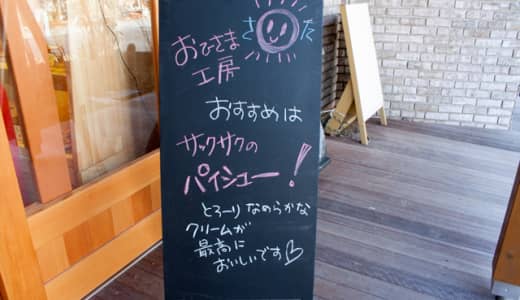 さた
おひさま
工房
おすすめは
サックサクの
パイシュー!
とろーりなめらかな
クリームが
最高に
おいしいです